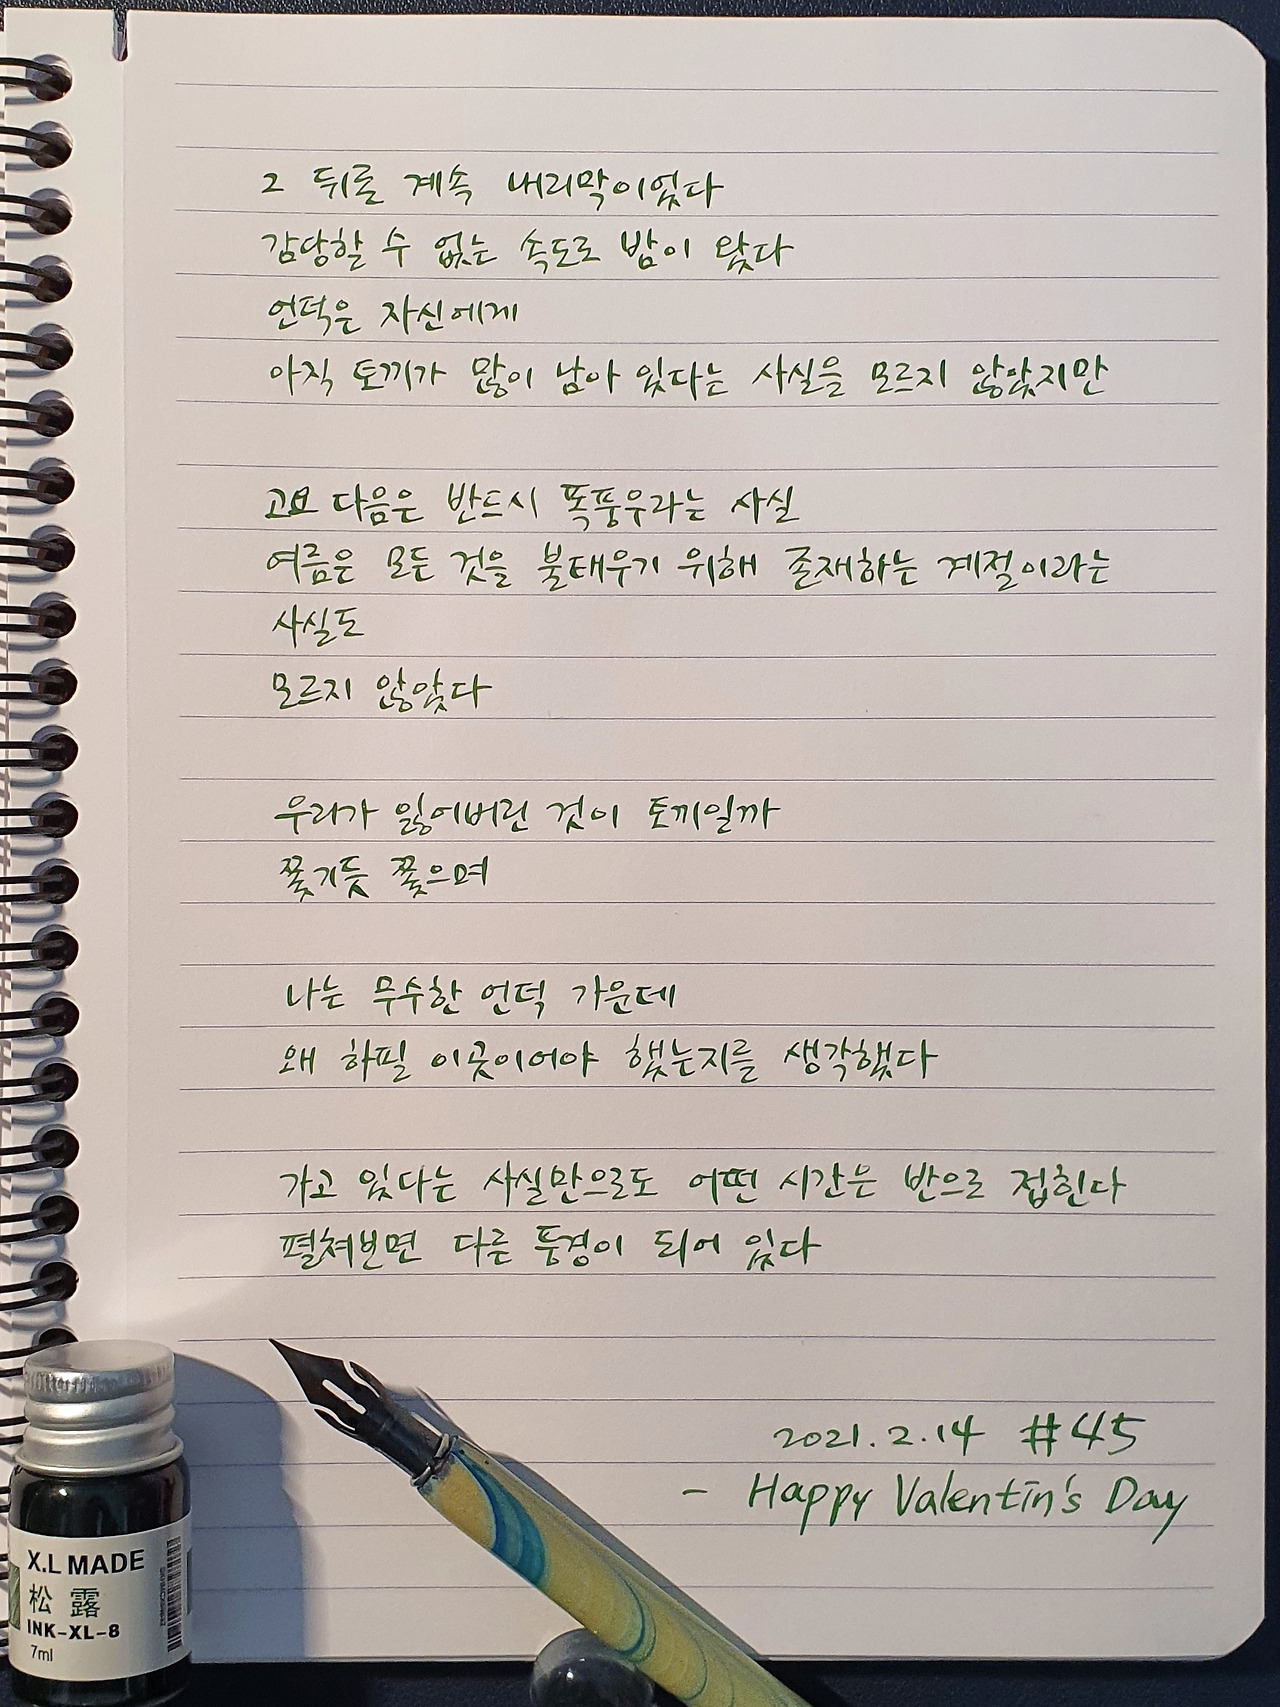 그 뒤로 계속 내리막이었다
감당할 수 없는 속도로 밤이 왔다
언덕은 자신에게
아직 토끼가 많이 남아 있다는 사실을 모르지 않았지만
고요 다음은 반드시 폭풍우라는 사실
여름은 모든 것을 불태우기 위해 존재하는 계절이라는
사실도
모르지 않았다
우리가 잃어버린 것이 토끼일까
쫓기듯 쫓으며
나는 무수한 언덕 가운데
왜 하필 이곳이어야 했는지를 생각했다
가고 있다는 사실만으로도 어떤 시간은 반으로 접힌다
펼쳐보면 다른 풍경이 되어 있다
2021. 2. 14 #45
- Happy Valentin's Day
X.L MADE
松露
INK-XL-8
7ml